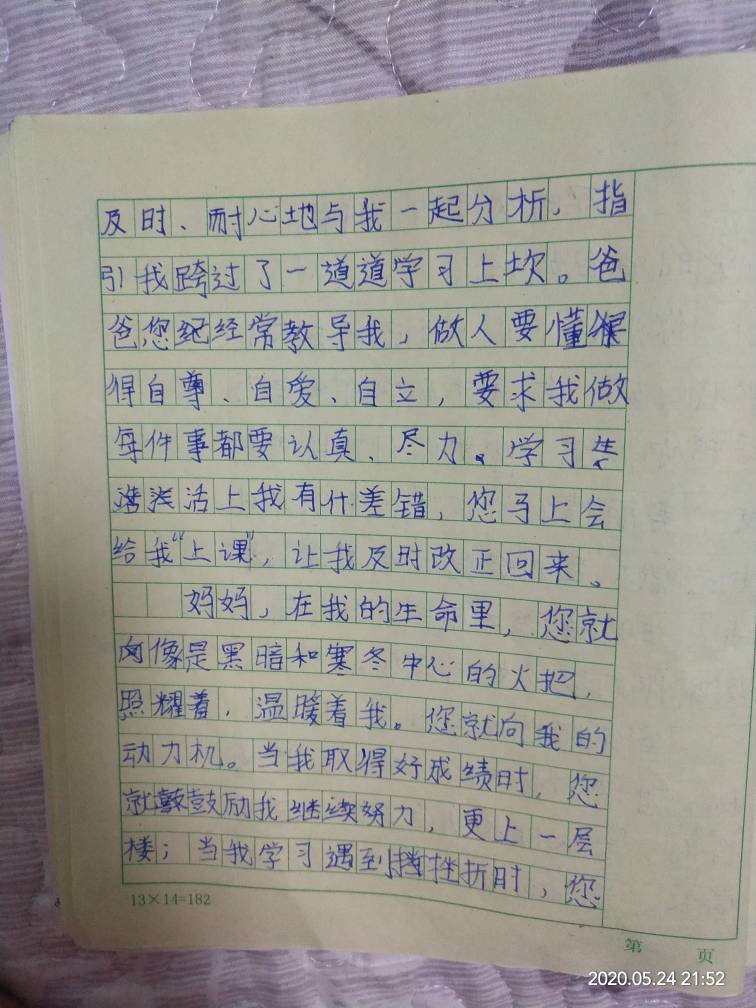 及时、耐心地与我一起分析，指
引我跨过了一道道学习上坎。爸
爸您经常教导我，做人要懂
得自尊、自爱、自立，要求我做
每件事都要认真、尽力。学习生
活上我有什差错，您马上会
给我“上课”，让我及时改正回来。
妈妈，在我的生命里，您就
像是黑暗和寒冬中心的火把，
照耀着，温暖着我。您就向我的
动力机。当我取得好成绩时，您
就鼓励我继续努力，更上一层
楼；当我学习遇到挫折时，您
13×14=182
第 页
2020.05.24 21:52